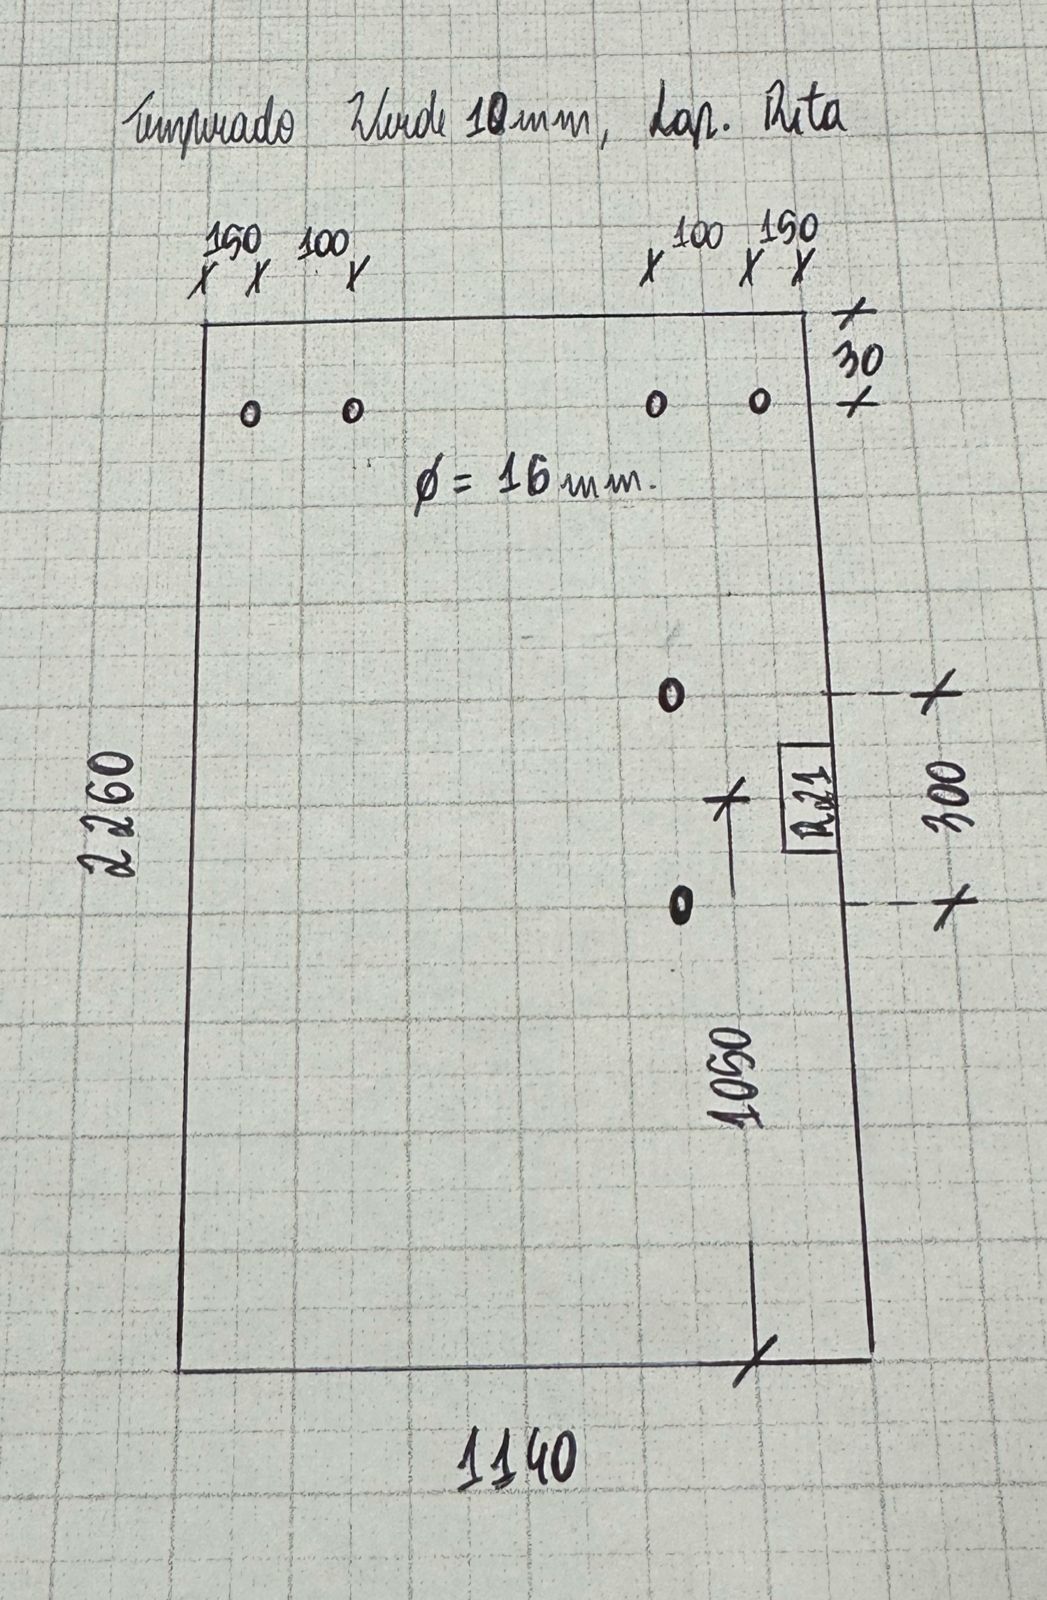 Temperado Verde 10mm, Lap. Reta
150 100 100 150
30
ø = 16mm.
R.21
300
2260
1050
1140